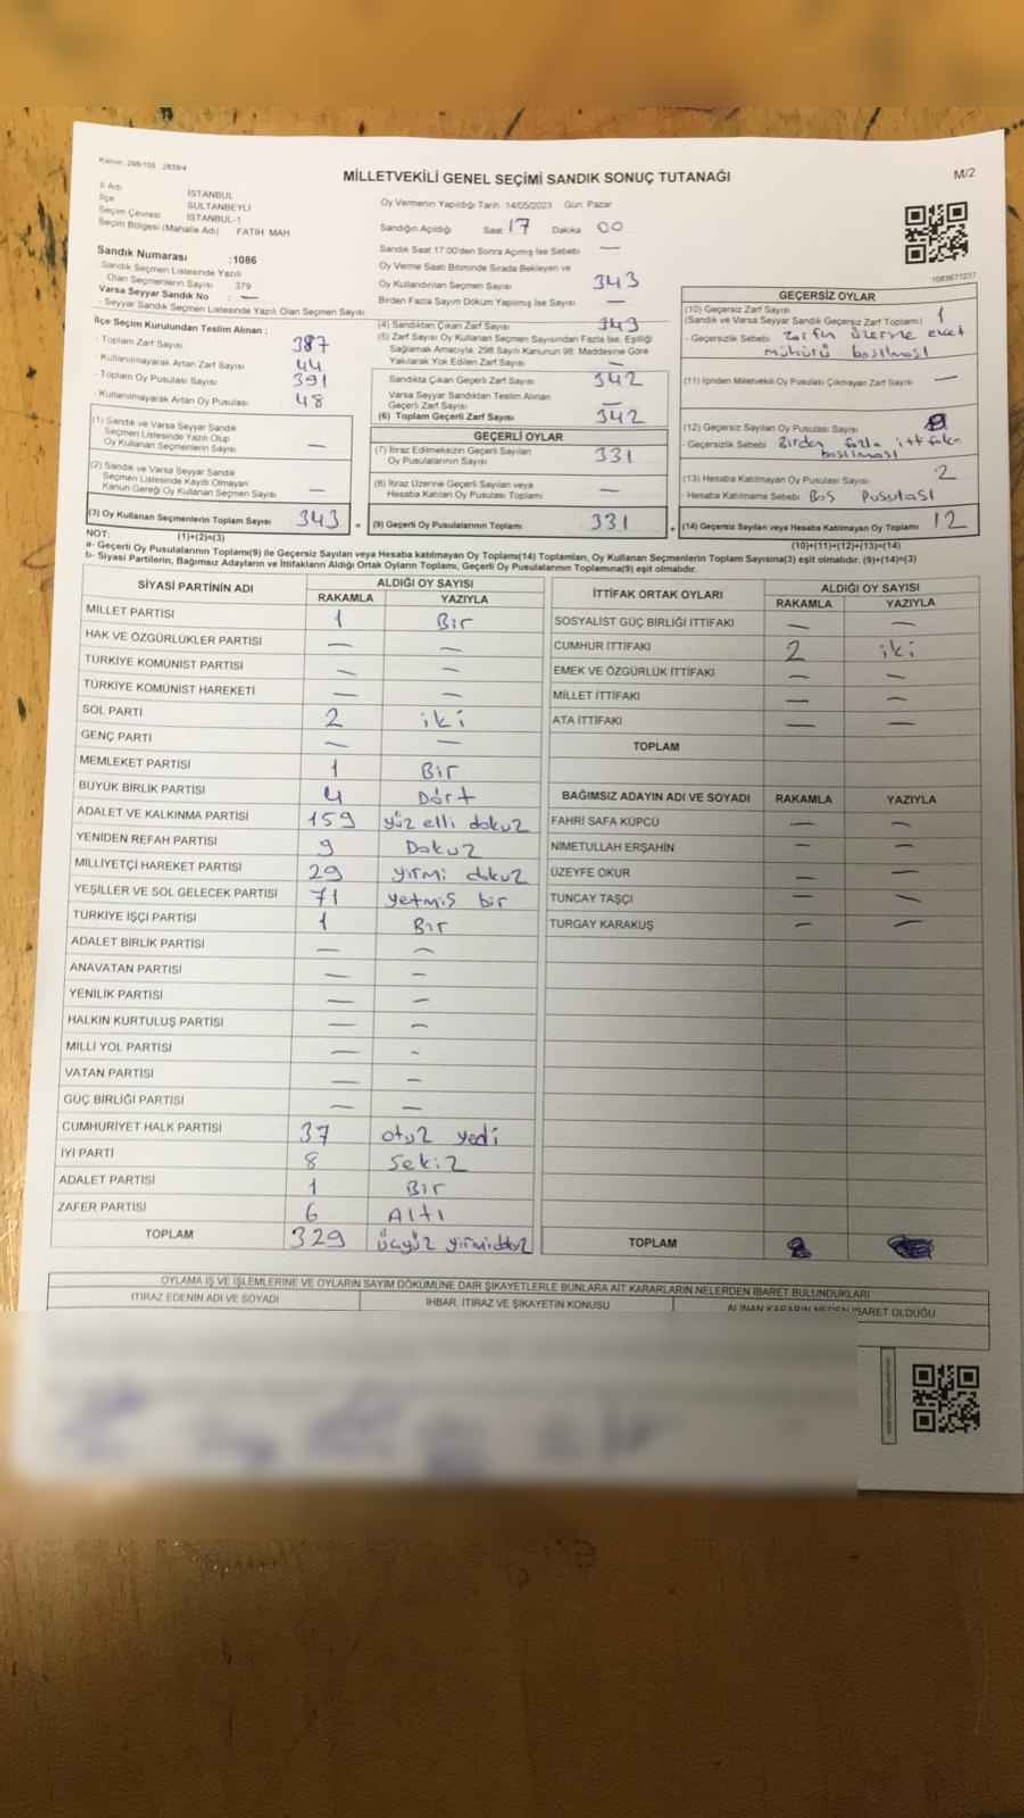 Kanun: 298/105 - 2839/4
MİLLETVEKİLİ GENEL SEÇİMİ SANDIK SONUÇ TUTANAĞI
M/2
İl Adı İSTANBUL
İlçe SULTANBEYLİ
Seçim Çevresi İSTANBUL-1
Seçim Bölgesi (Mahalle Adı) FATİH MAH
Sandık Numarası :1086
Sandık Seçmen Listesinde Yazılı
Olan Seçmenlerin Sayısı 379
Varsa Seyyar Sandık No : —
- Seyyar Sandık Seçmen Listesinde Yazılı Olan Seçmen Sayısı
Oy Vermenin Yapıldığı Tarih: 14/05/2023 Gün: Pazar
Sandığın Açıldığı Saat 17 Dakika 00
Sandık Saat 17.00'den Sonra Açılmış İse Sebebi —
Oy Verme Saati Bitiminde Sırada Bekleyen ve
Oy Kullandırılan Seçmen Sayısı 343
Birden Fazla Sayım Döküm Yapılmış İse Sayısı —
İlçe Seçim Kurulundan Teslim Alınan :
- Toplam Zarf Sayısı 387
- Kullanılmayarak Artan Zarf Sayısı 44
- Toplam Oy Pusulası Sayısı 391
- Kullanılmayarak Artan Oy Pusulası 48
(1) Sandık ve Varsa Seyyar Sandık
Seçmen Listesinde Yazılı Olup
Oy Kullanan Seçmenlerin Sayısı —
(2) Sandık ve Varsa Seyyar Sandık
Seçmen Listesinde Kayıtlı Olmayan
Kanun Gereği Oy Kullanan Seçmen Sayısı —
(3) Oy Kullanan Seçmenlerin Toplam Sayısı 343 =
(1)+(2)=(3)
(4) Sandıktan Çıkan Zarf Sayısı 343
(5) Zarf Sayısı Oy Kullanan Seçmen Sayısından Fazla İse, Eşitliği
Sağlamak Amacıyla, 298 Sayılı Kanunun 98. Maddesine Göre
Yakılarak Yok Edilen Zarf Sayısı —
Sandıkta Çıkan Geçerli Zarf Sayısı 342
Varsa Seyyar Sandıktan Teslim Alınan
Geçerli Zarf Sayısı —
(6) Toplam Geçerli Zarf Sayısı 342
GEÇERLİ OYLAR
(7) İtiraz Edilmeksizin Geçerli Sayılan
Oy Pusulalarının Sayısı 331
(8) İtiraz Üzerine Geçerli Sayılan veya
Hesaba Katılan Oy Pusulası Toplamı —
(9) Geçerli Oy Pusulalarının Toplamı 331 +
GEÇERSİZ OYLAR
(10) Geçersiz Zarf Sayısı 1
(Sandık ve Varsa Seyyar Sandık Geçersiz Zarf Toplamı)
- Geçersizlik Sebebi Zarfın üzerine evet
mühürü basılması
(11) İçinden Milletvekili Oy Pusulası Çıkmayan Zarf Sayısı —
(12) Geçersiz Sayılan Oy Pusulası Sayısı
- Geçersizlik Sebebi Birden fazla ittifaka
basılması
(13) Hesaba Katılmayan Oy Pusulası Sayısı 2
- Hesaba Katılmama Sebebi Boş Pusulası
(14) Geçersiz Sayılan veya Hesaba Katılmayan Oy Toplamı 12
(10)+(11)+(12)+(13)=(14)
NOT:
a- Geçerli Oy Pusulalarının Toplamı(9) ile Geçersiz Sayılan veya Hesaba katılmayan Oy Toplamı(14) Toplamları, Oy Kullanan Seçmenlerin Toplam Sayısına(3) eşit olmalıdır. (9)+(14)=(3)
b- Siyasi Partilerin, Bağımsız Adayların ve İttifakların Aldığı Ortak Oyların Toplamı, Geçerli Oy Pusulalarının Toplamına(9) eşit olmalıdır.
SİYASİ PARTİNİN ADI ALDIĞI OY SAYISI
RAKAMLA YAZIYLA
MİLLET PARTİSİ 1 Bir
HAK VE ÖZGÜRLÜKLER PARTİSİ — —
TÜRKİYE KOMÜNİST PARTİSİ — —
TÜRKİYE KOMÜNİST HAREKETİ — —
SOL PARTİ 2 iki
GENÇ PARTİ — —
MEMLEKET PARTİSİ 1 Bir
BÜYÜK BİRLİK PARTİSİ 4 Dört
ADALET VE KALKINMA PARTİSİ 159 yüz elli dokuz
YENİDEN REFAH PARTİSİ 9 Dokuz
MİLLİYETÇİ HAREKET PARTİSİ 29 yirmi dokuz
YEŞİLLER VE SOL GELECEK PARTİSİ 71 yetmiş bir
TÜRKİYE İŞÇİ PARTİSİ 1 Bir
ADALET BİRLİK PARTİSİ — —
ANAVATAN PARTİSİ — —
YENİLİK PARTİSİ — —
HALKIN KURTULUŞ PARTİSİ — —
MİLLİ YOL PARTİSİ — -
VATAN PARTİSİ — —
GÜÇ BİRLİĞİ PARTİSİ — —
CUMHURİYET HALK PARTİSİ 37 otuz yedi
İYİ PARTİ 8 Sekiz
ADALET PARTİSİ 1 Bir
ZAFER PARTİSİ 6 Altı
TOPLAM 329 üçyüz yirmidokuz
İTTİFAK ORTAK OYLARI ALDIĞI OY SAYISI
RAKAMLA YAZIYLA
SOSYALİST GÜÇ BİRLİĞİ İTTİFAKI — —
CUMHUR İTTİFAKI 2 iki
EMEK VE ÖZGÜRLÜK İTTİFAKI — —
MİLLET İTTİFAKI — —
ATA İTTİFAKI — —
TOPLAM
BAĞIMSIZ ADAYIN ADI VE SOYADI RAKAMLA YAZIYLA
FAHRİ SAFA KÜPCÜ — —
NİMETULLAH ERŞAHİN — —
ÜZEYFE OKUR — —
TUNCAY TAŞÇI — —
TURGAY KARAKUŞ — —
TOPLAM
OYLAMA İŞ VE İŞLEMLERİNE VE OYLARIN SAYIM DÖKÜMÜNE DAİR ŞİKAYETLERLE BUNLARA AİT KARARLARIN NELERDEN İBARET BULUNDUKLARI
İTİRAZ EDENİN ADI VE SOYADI İHBAR, İTİRAZ VE ŞİKAYETİN KONUSU ALINAN KARARIN NEDEN İBARET OLDUĞU